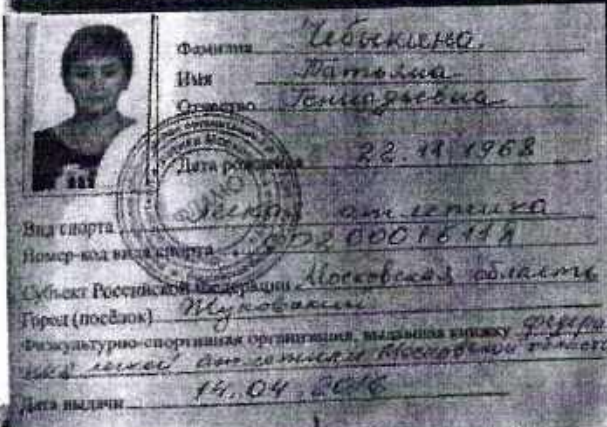 Фамилия Чебыкина
Имя Татьяна
Отчество Геннадьевна
Дата рождения 22.11.1968
Вид спорта легкая атлетика
Номер-код вида спорта 0020001611Я
Субъект Российской Федерации Московская область
Город (посёлок) Жуковский
Физкультурно-спортивная организация, выдавшая книжку Федера
ция легкой атлетики Московской области
Дата выдачи 14.04.2016